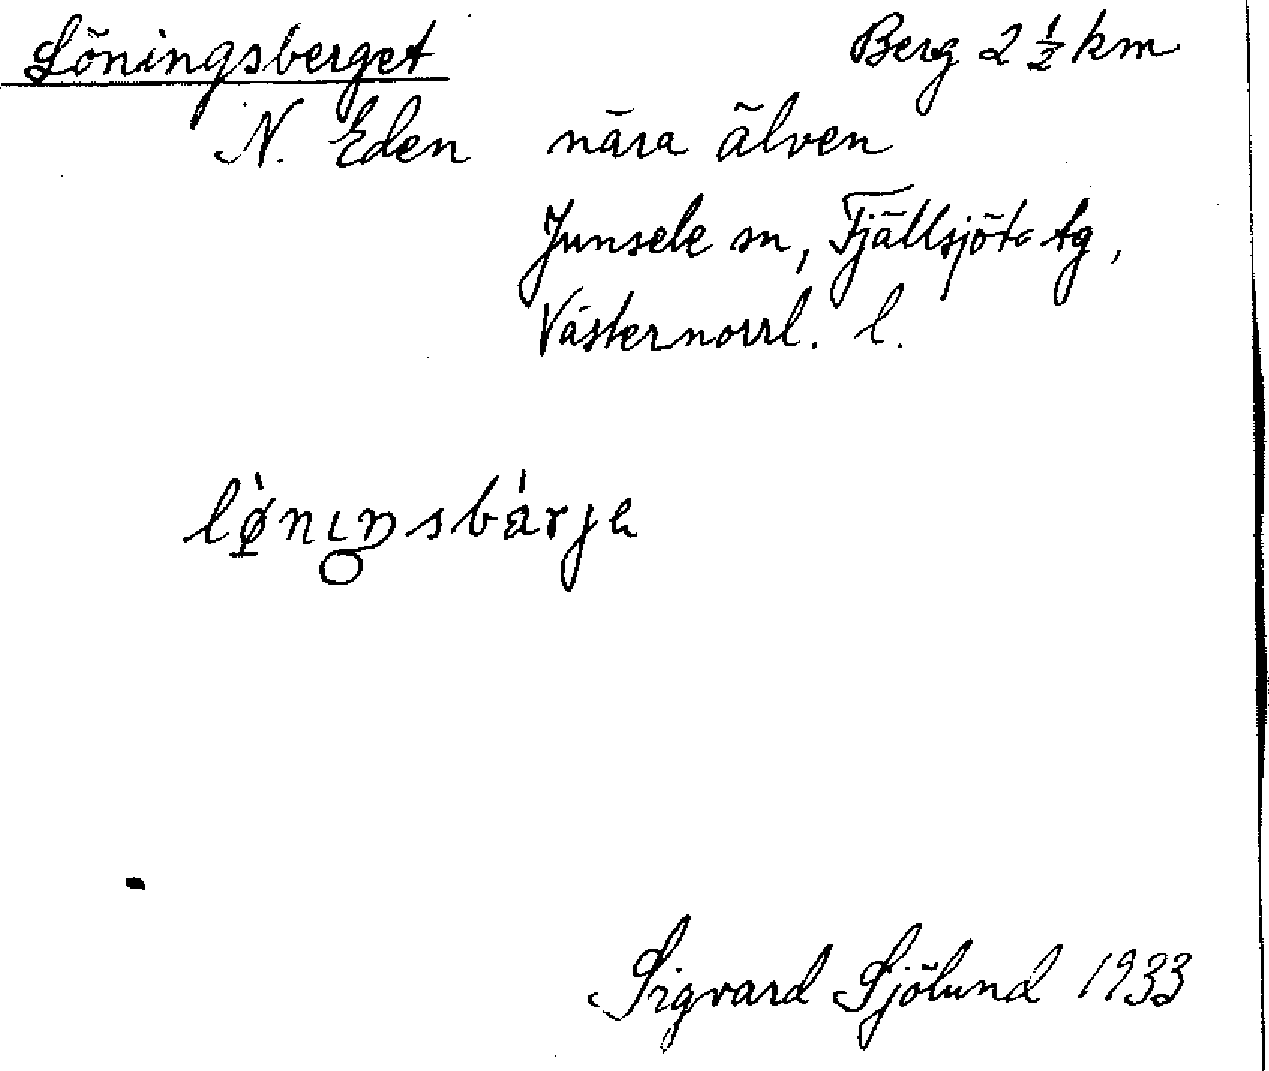 Löningsberget Berg 2 ½ km
N. Eden nära älven
Junsele sn, Fjällsjö tg,
Västernorrl. l.
lø̀nıŋsbárje
Sigvard Sjölund 1933